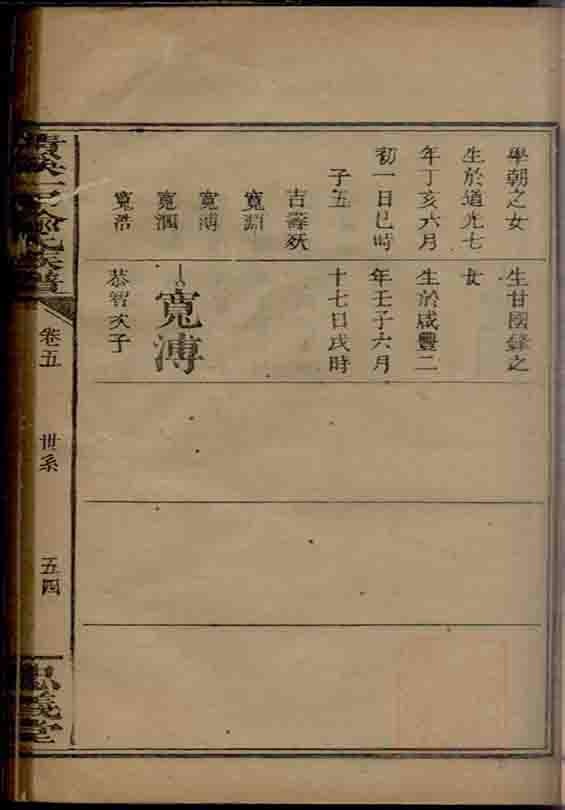 學朝之女
生於道光七
年丁亥六月
初一日巳時
子五
古壽殀
寬淵
寬溥
寬浩
生甘國鋒之
女
生於咸豐二
年壬子六月
十七日戌時
寬溥
恭智次子
氏族譜
卷五
世系
五四
忠義堂